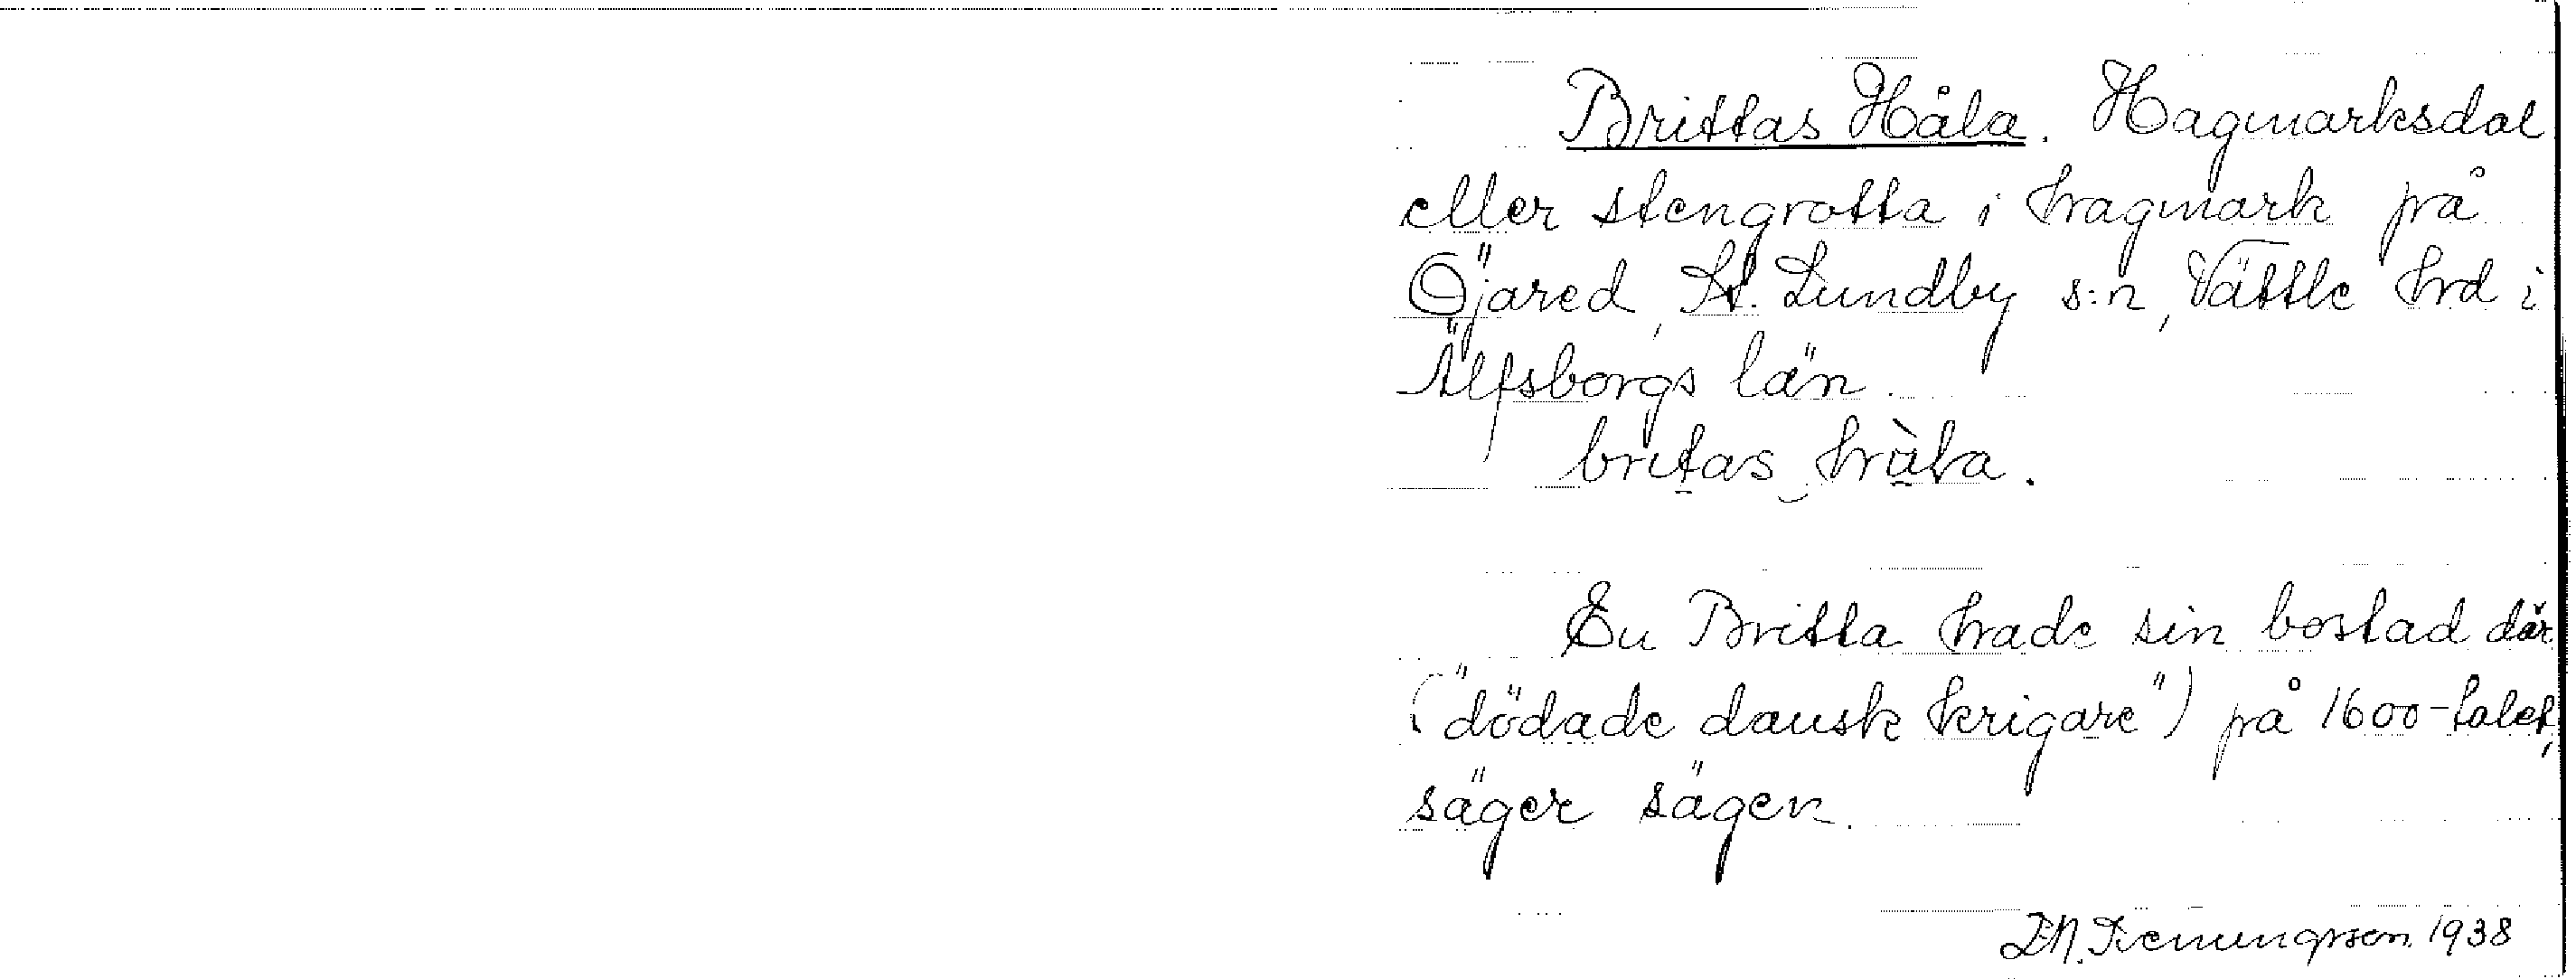 Brittas Håla. Hagmarksdal
eller stengrotta i hagmark på
Öjared, St. Lundby s:n, Vättle hd i
Älfsborgs län.
britas
En Britta hade sin bostad där
("dödade dansk krigare") på 1600-talet,
säger sägen.
1938